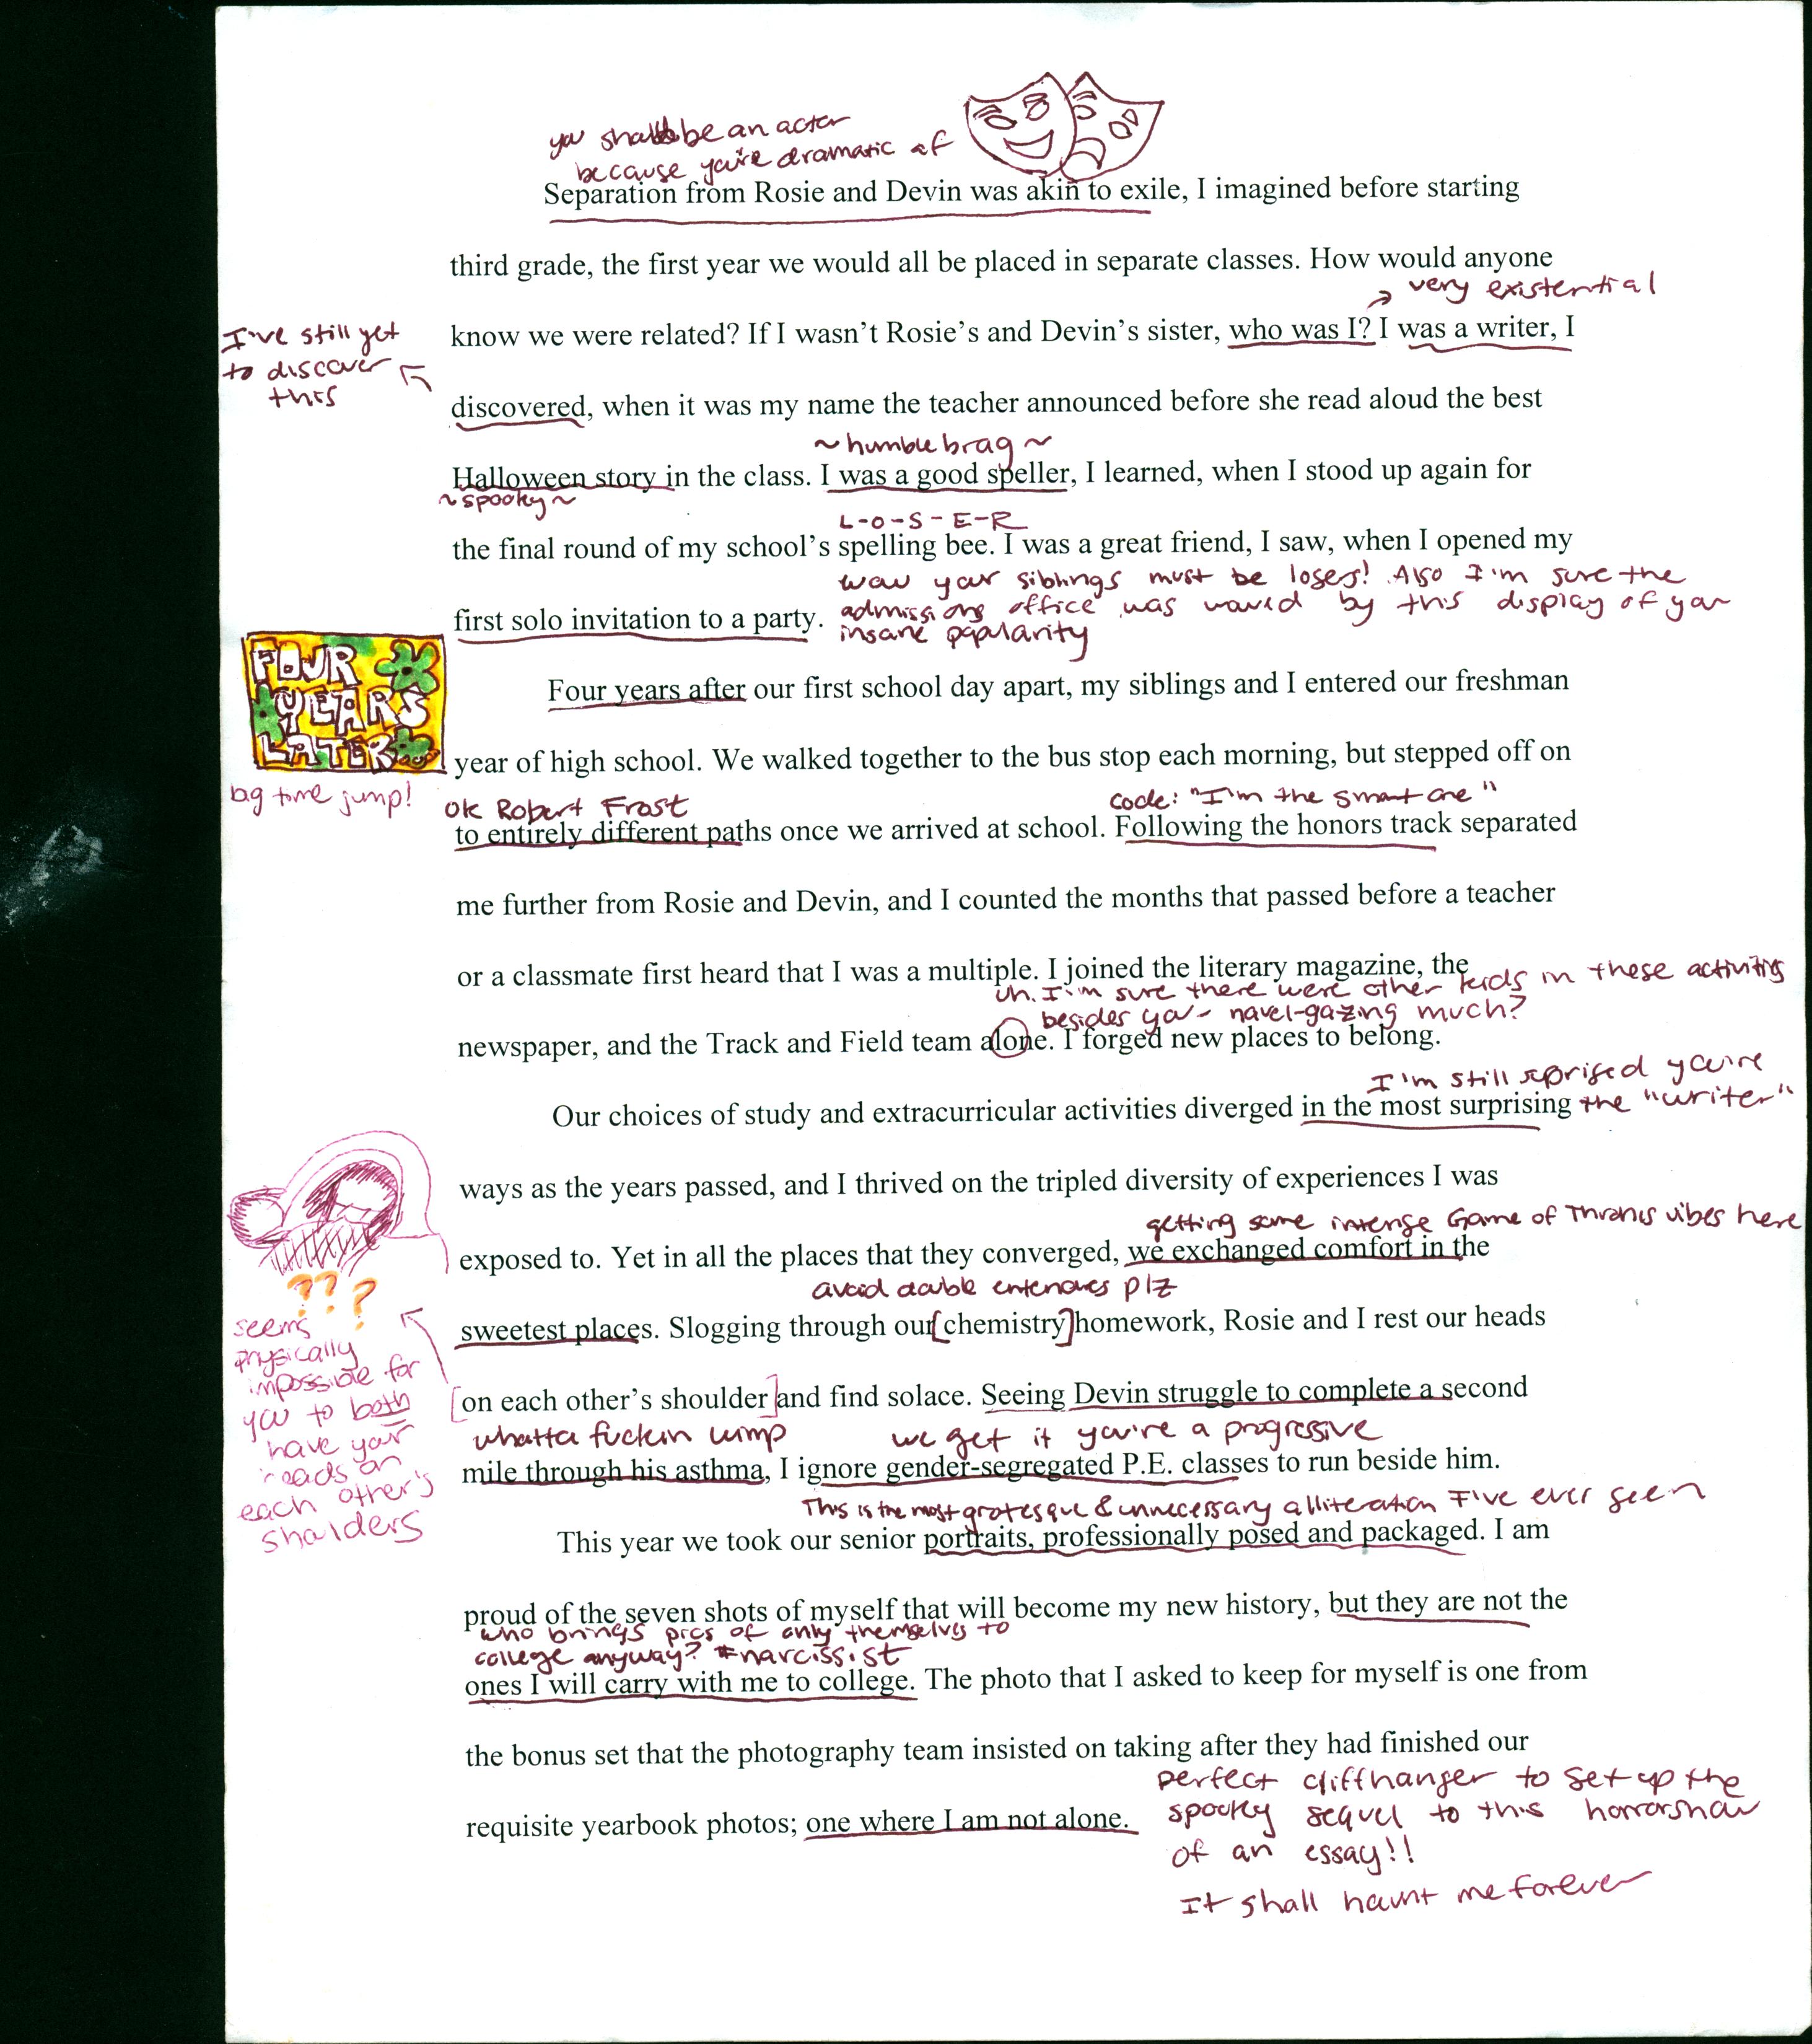 you should be an actor
because you're dramatic af
Separation from Rosie and Devin was akin to exile, I imagined before starting
third grade, the first year we would all be placed in separate classes. How would anyone
very existential
I've still yet
to discover
this
know we were related? If I wasn't Rosie's and Devin's sister, who was I? I was a writer, I
discovered, when it was my name the teacher announced before she read aloud the best
~humble brag~
Halloween story in the class. I was a good speller, I learned, when I stood up again for
~spooky~
L-O-S-E-R
the final round of my school's spelling bee. I was a great friend, I saw, when I opened my
wow your siblings must be losers! Also I'm sure the
first solo invitation to a party. admissions office was wowed by this display of your
insane popularity
FOUR
YEARS
LATER
big time jump!
Four years after our first school day apart, my siblings and I entered our freshman
year of high school. We walked together to the bus stop each morning, but stepped off on
ok Robert Frost
code: "I'm the smart one"
to entirely different paths once we arrived at school. Following the honors track separated
me further from Rosie and Devin, and I counted the months that passed before a teacher
or a classmate first heard that I was a multiple. I joined the literary magazine, the
uh. I'm sure there were other kids in these activities
besides you - navel-gazing much?
newspaper, and the Track and Field team alone. I forged new places to belong.
I'm still suprised you're
the "writer"
Our choices of study and extracurricular activities diverged in the most surprising
ways as the years passed, and I thrived on the tripled diversity of experiences I was
getting some intense Game of Thrones vibes here
exposed to. Yet in all the places that they converged, we exchanged comfort in the
avoid double entendres plz
sweetest places. Slogging through our [chemistry] homework, Rosie and I rest our heads
???
seems
physically
impossible for
you to both
have your
heads on
each other's
shoulders
[on each other's shoulder] and find solace. Seeing Devin struggle to complete a second
whatta fuckin wimp
we get it you're a progressive
mile through his asthma, I ignore gender-segregated P.E. classes to run beside him.
This is the most grotesque & unnecessary alliteration I've ever seen
This year we took our senior portraits, professionally posed and packaged. I am
proud of the seven shots of myself that will become my new history, but they are not the
who brings pics of only themselves to
college anyway? #narcissist
ones I will carry with me to college. The photo that I asked to keep for myself is one from
the bonus set that the photography team insisted on taking after they had finished our
requisite yearbook photos; one where I am not alone.
perfect cliffhanger to set up the
spooky sequel to this horrorshow
of an essay!!
It shall haunt me forever